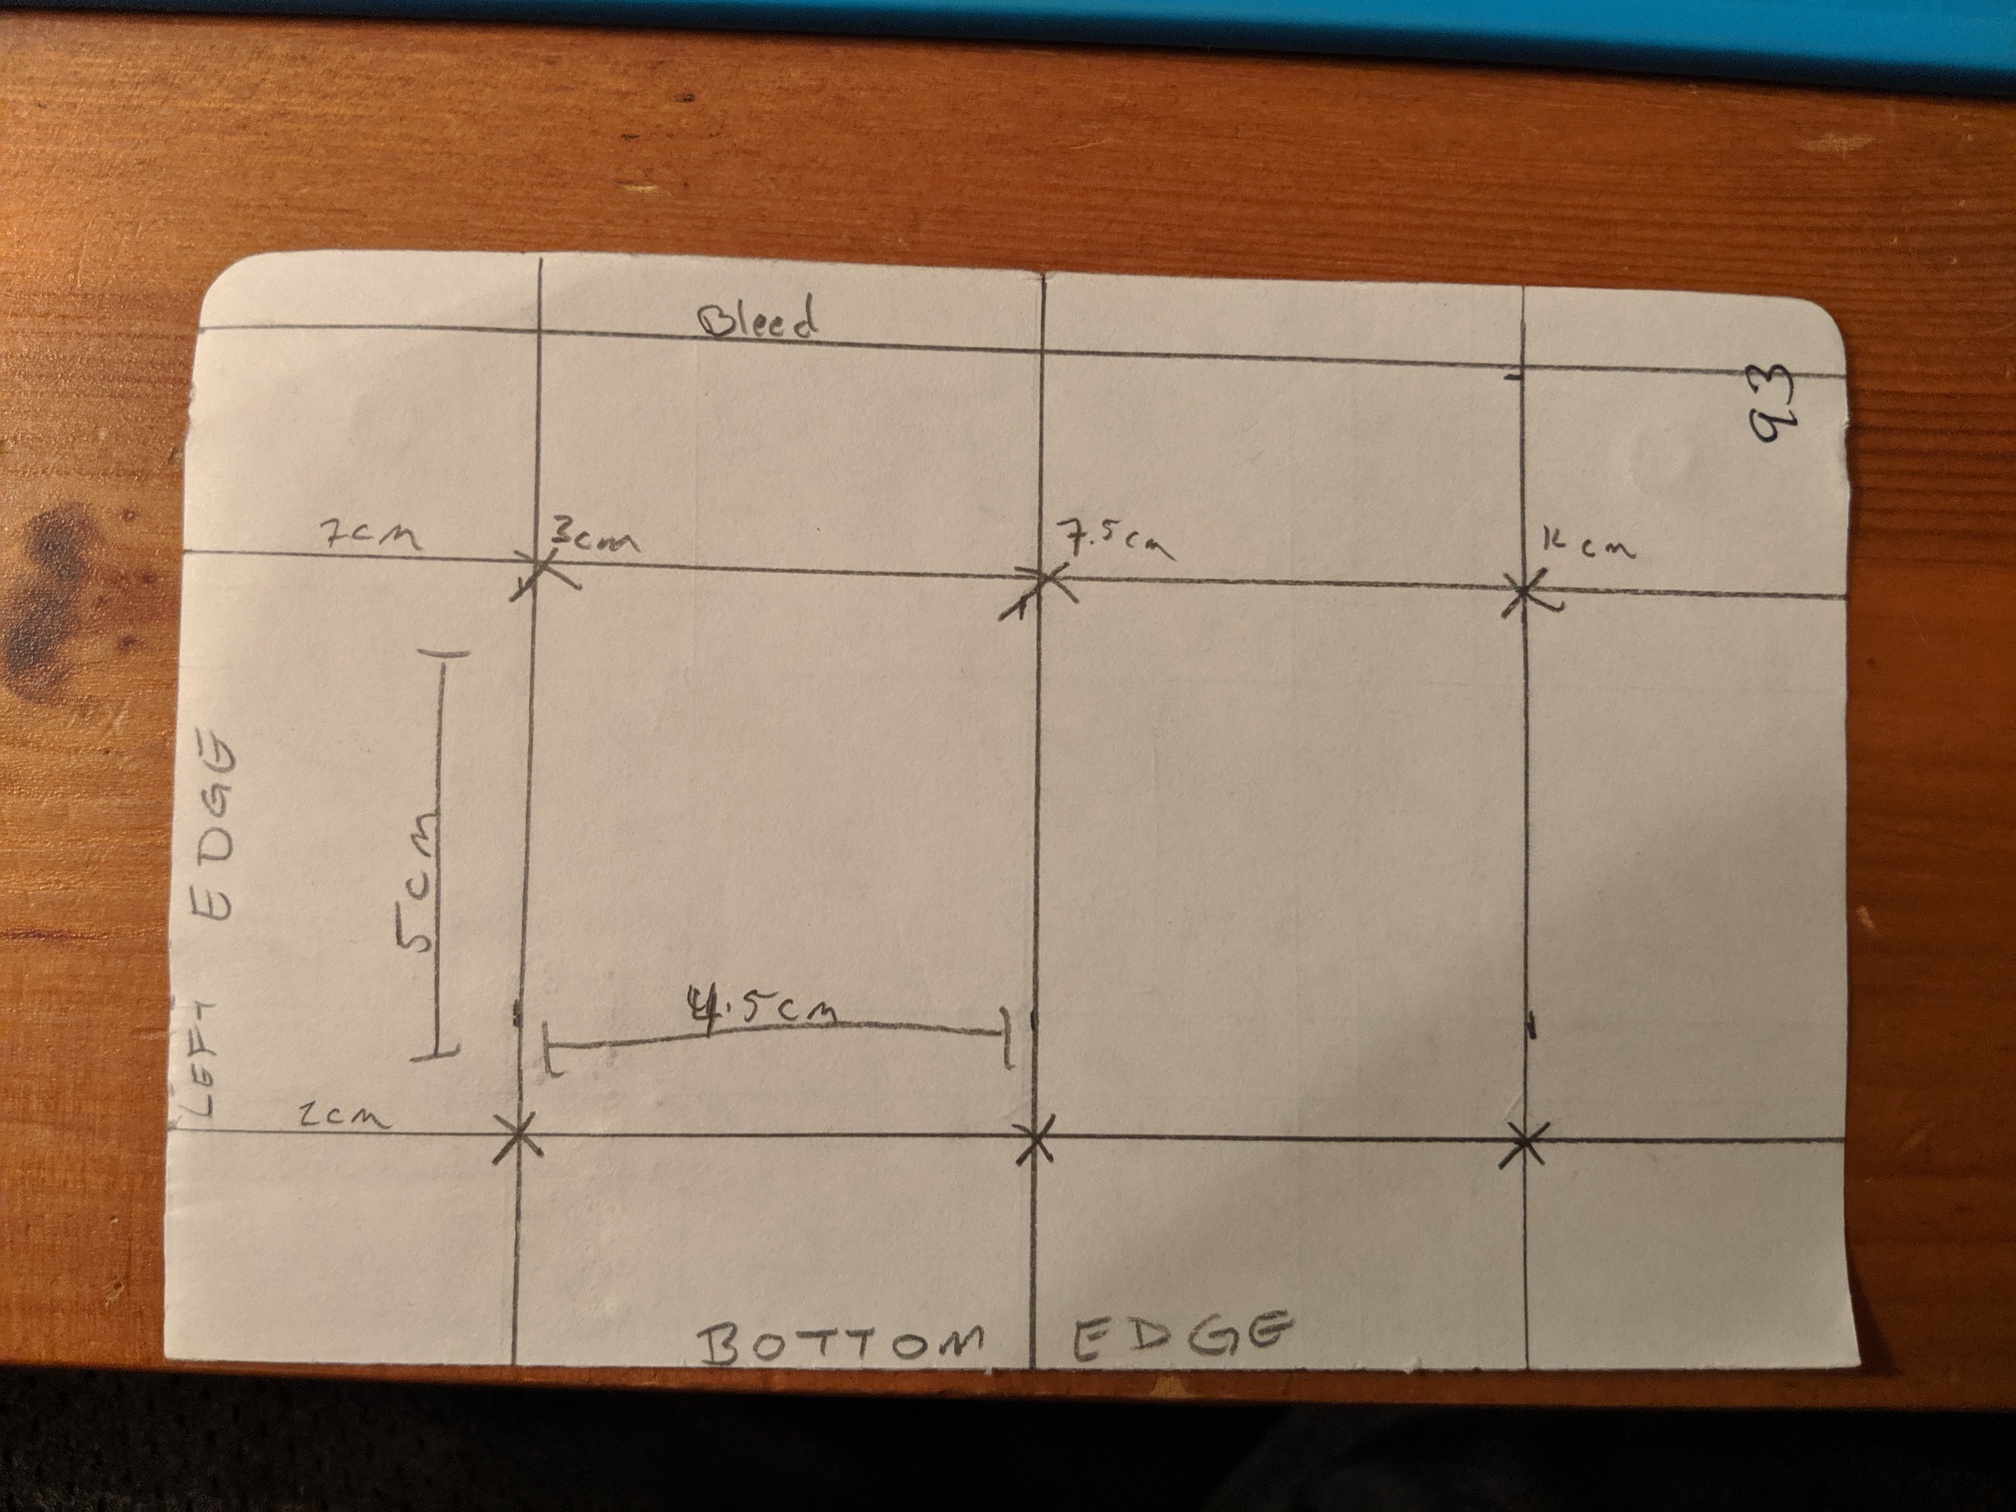 Bleed
93
7cm
3cm
7.5cm
12 cm
5cm
LEFT EDGE
4.5cm
2cm
BOTTOM EDGE